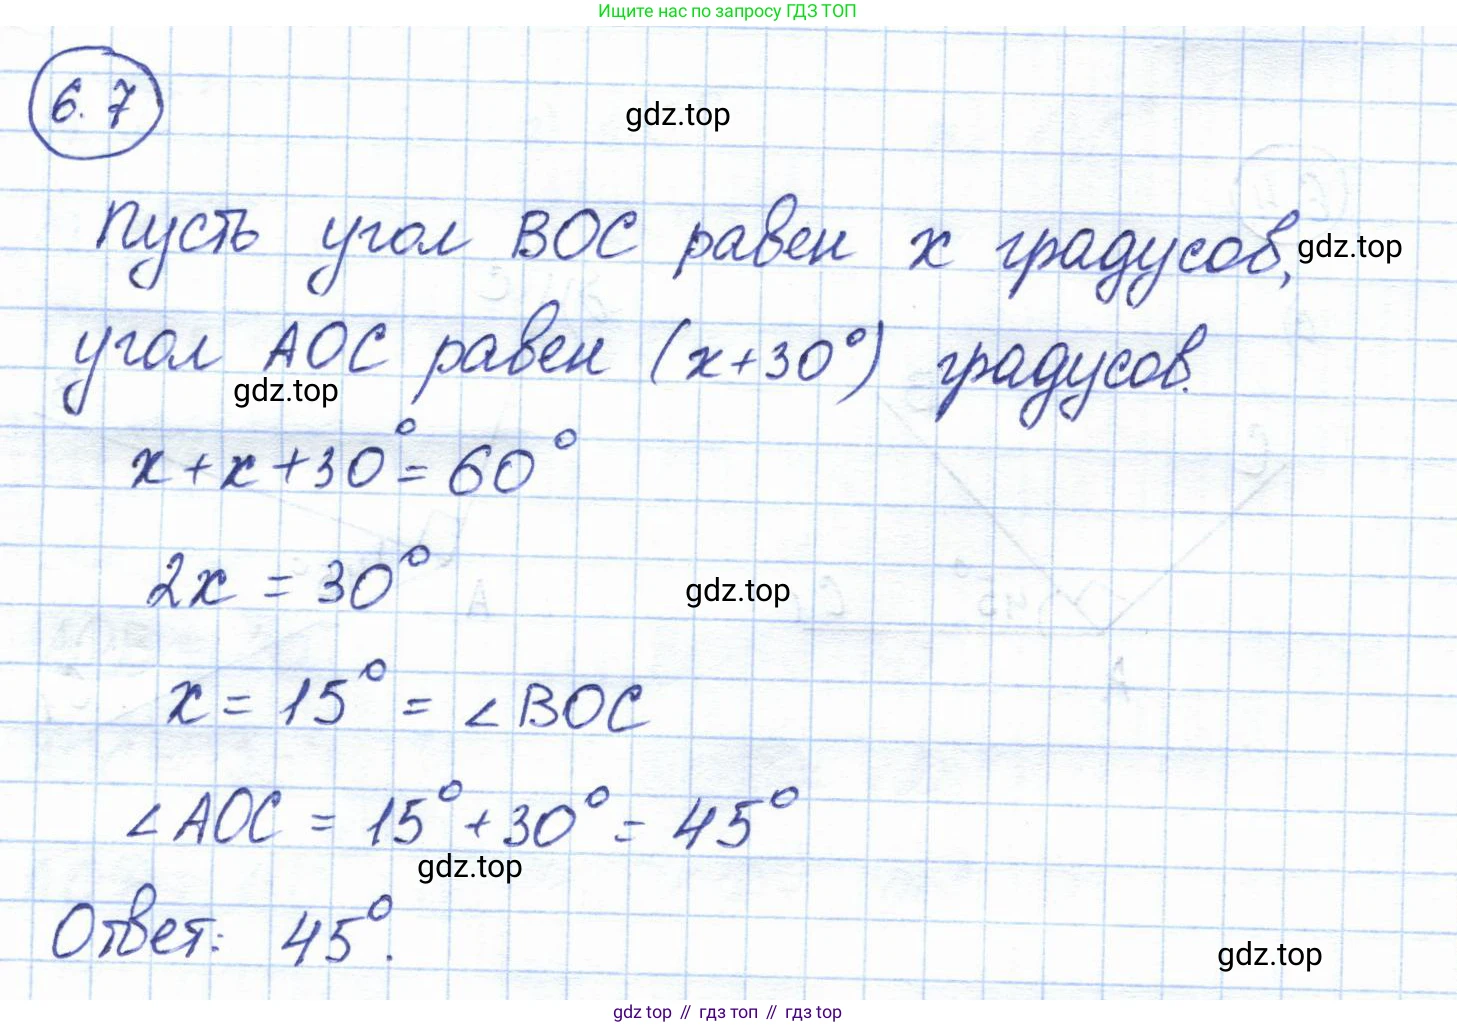 Ищите нас по запросу ГДЗ ТОП
6.7
gdz.top
Пусть угол BOC равен x градусов,
gdz.top
угол AOC равен (x+30°) градусов.
gdz.top
x + x + 30° = 60°
2x = 30°
gdz.top
x = 15° = ∠BOC
∠AOC = 15° + 30° = 45°
gdz.top
Ответ: 45°.
gdz.top
gdz top // гдз топ // gdz top